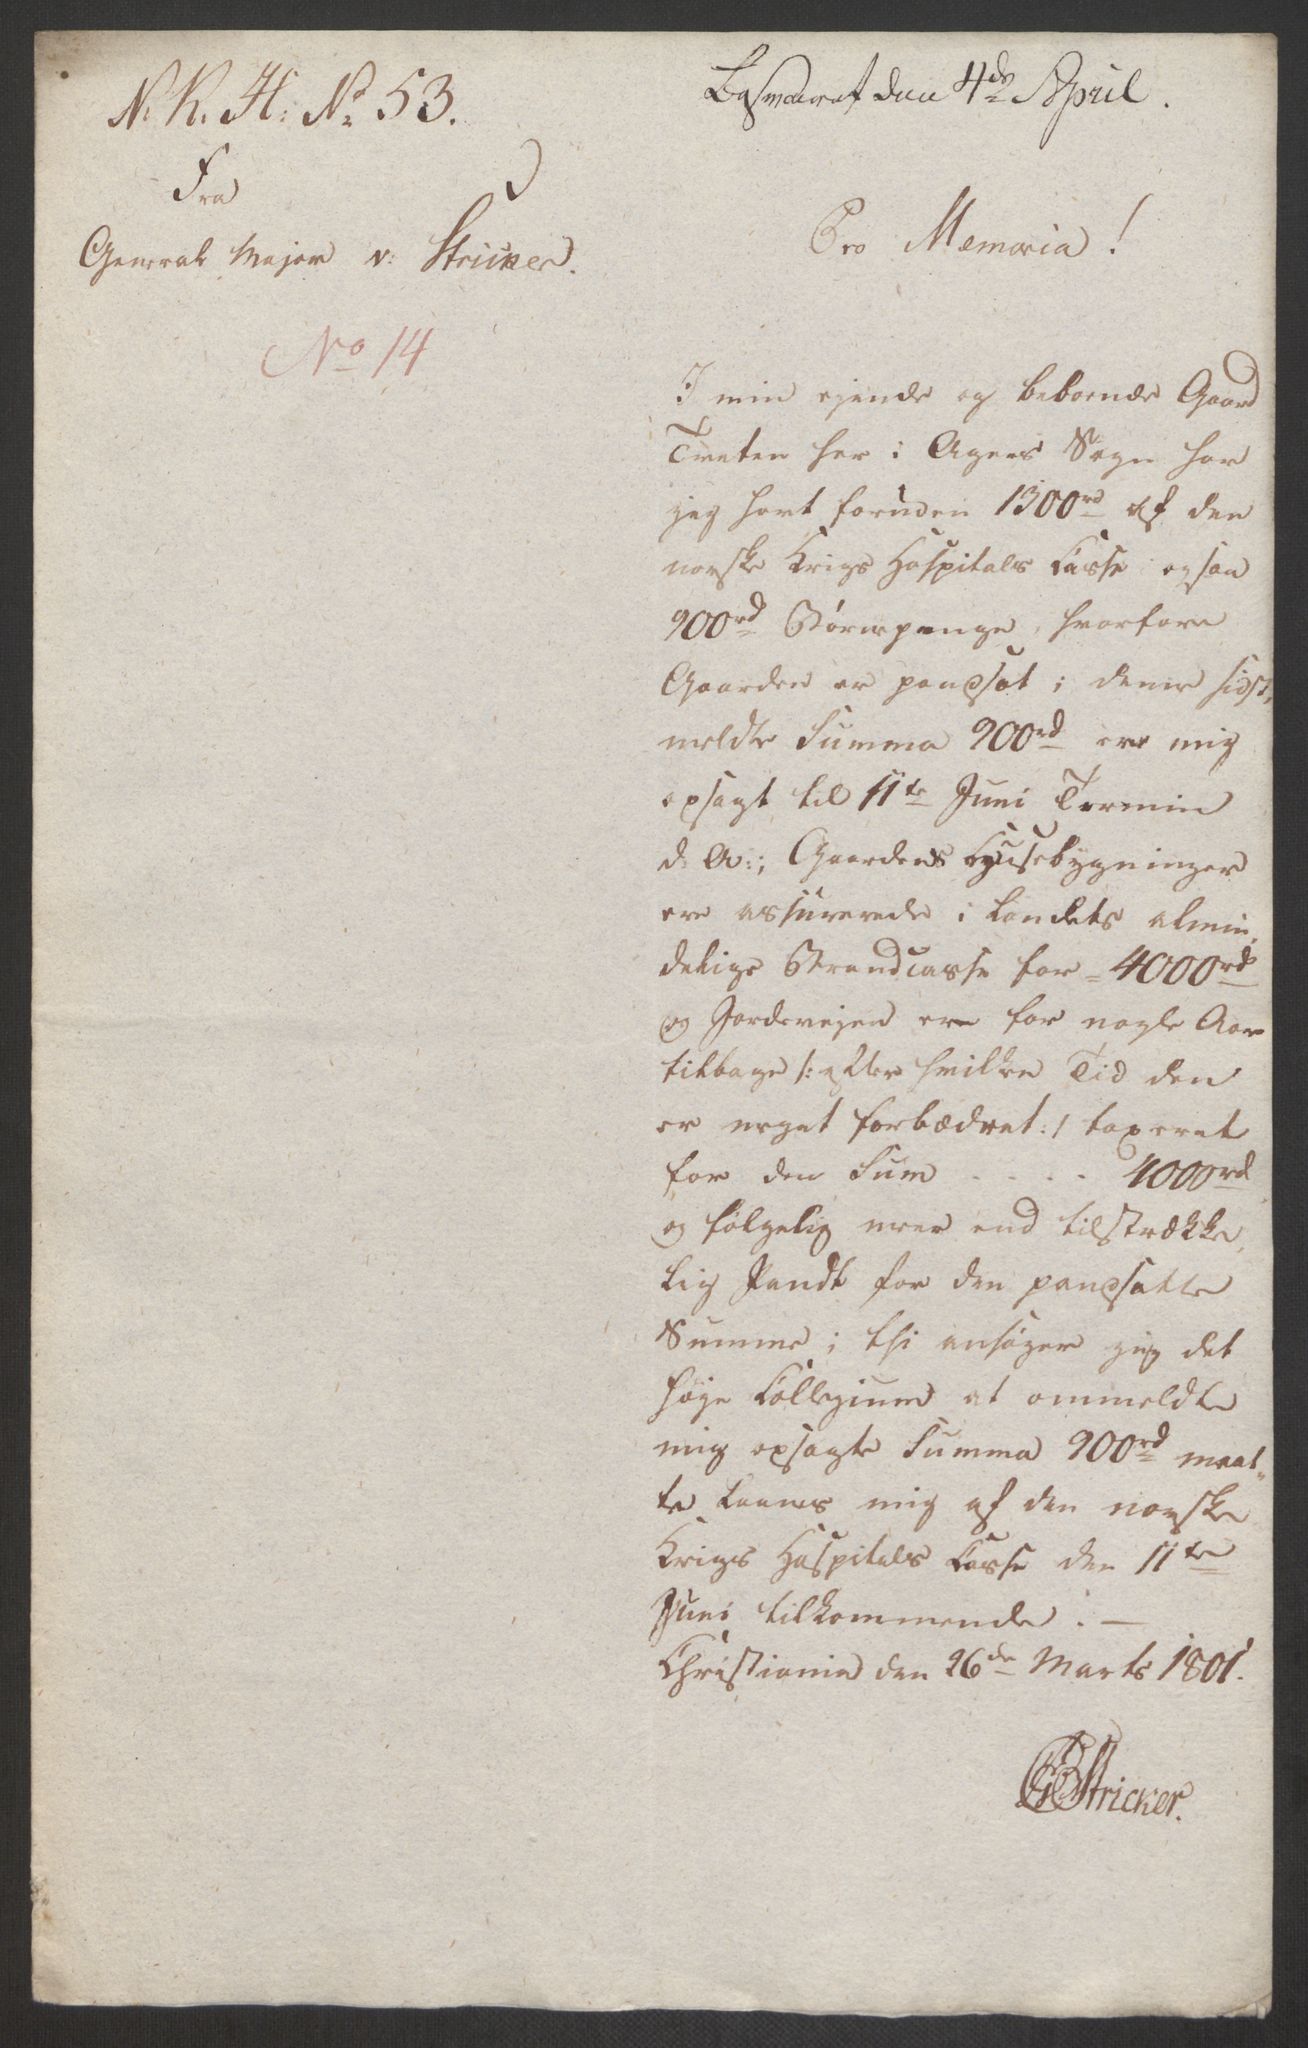 N. K. H: No 53.
Fra
General Major v: Stricker.
No 14
Besvaret den 4de April.
Pro Memoria!
I min ejende og beboende Gaard
Tveten her i Agers Sogn har
jeg havt foruden 1300rd af den
norske Krigs Hospitals Casse ogsaa
900rd Børnepenge, hvorfore
Gaarden er pandsat; denne sidst,
meldte Summa 900rd ere mig
opsagt til 11te Juni Termin
d: A:; Gaardens Huusebygninger
ere assurerede i Landets almin,
delige Brandcasse for - 4000rd
og Jordevejen ere for nogle Aar
tilbage /: efter hvilken Tid den
er meget forbædret :/ taxeret
for den Sum - - - - 4000rd
og følgelig meer end tilstrække,
lig Pandt for den pandsatte
Summe; thi ansøger jeg det
høje Collegium at ommeldte
mig opsagte Summa 900rd maat,,
te laanes mig af den norske
Krigs Hospitals Casse den 11te
Juni tilkommende. —
Christiania den 26de Marts 1801.
Stricker.